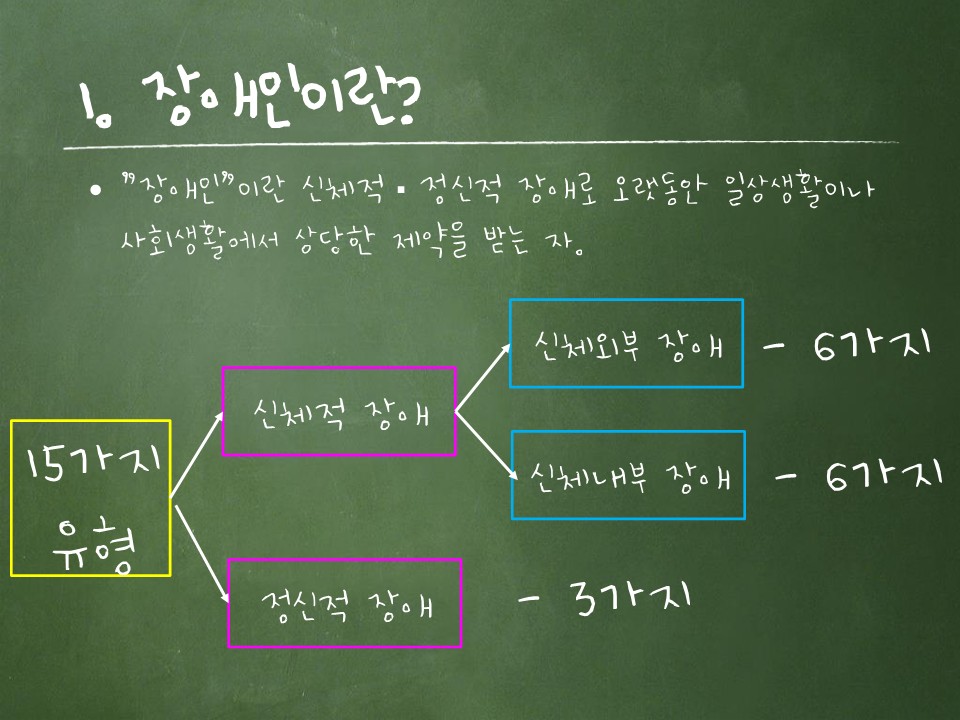 1. 장애인이란?
• "장애인"이란 신체적 ▪ 정신적 장애로 오랫동안 일상생활이나
사회생활에서 상당한 제약을 받는 자.
신체외부 장애 - 6가지
신체적 장애
15가지
유형
신체내부 장애 - 6가지
정신적 장애 - 3가지